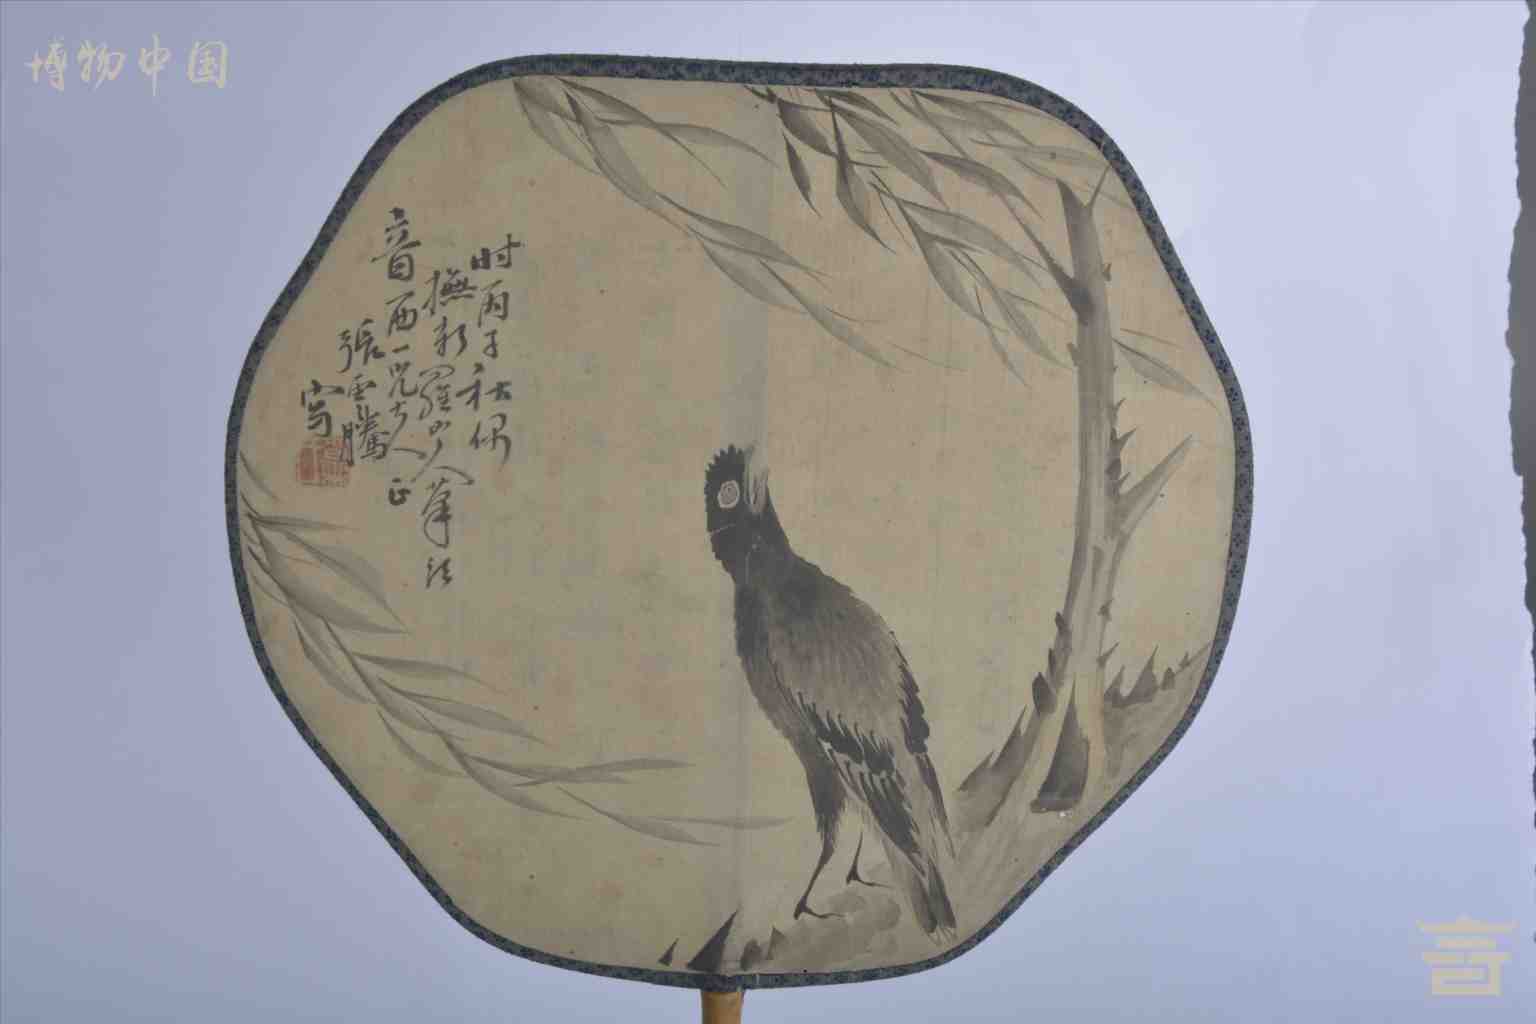 博物中国
时丙子秋偶
橅新罗山人笔法
音西一兄大人正
張雲騰
写